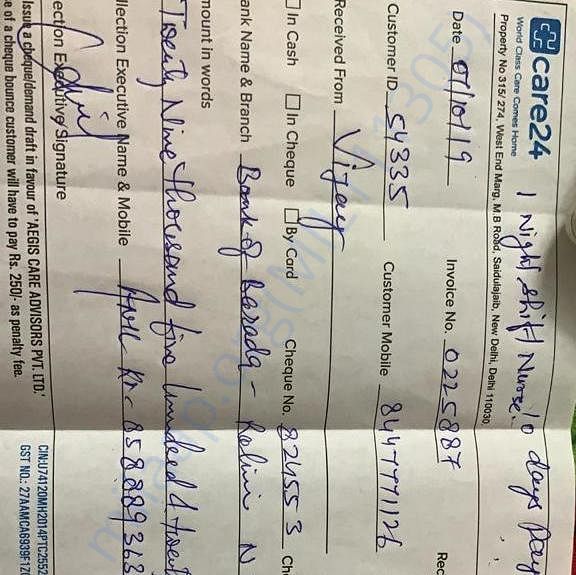 care24
World Class Care Comes Home
1 Night Shift Nurse 10 days Pay
Property No 315/ 274, West End Marg, M.B Road, Saidulajaib, New Delhi, Delhi 110030.
Date 07/10/19 Invoice No. 0225887 Rec
Customer ID 54335 Customer Mobile 8447771126
Received From Vijay
In Cash In Cheque By Card Cheque No. 824553 Ch
ank Name & Branch Bank of Baroda - Rohini N
mount in words
Twenty Nine Thousand five hundred & twent
llection Executive Name & Mobile
ection Executive Signature
issue a cheque/demand draft in favour of 'AEGIS CARE ADVISORS PVT. LTD.'
e of a cheque bounce customer will have to pay Rs. 250/- as penalty fee.
CIN:U74120MH2014PTC2552
GST NO.: 27AAMCA6939F1Z